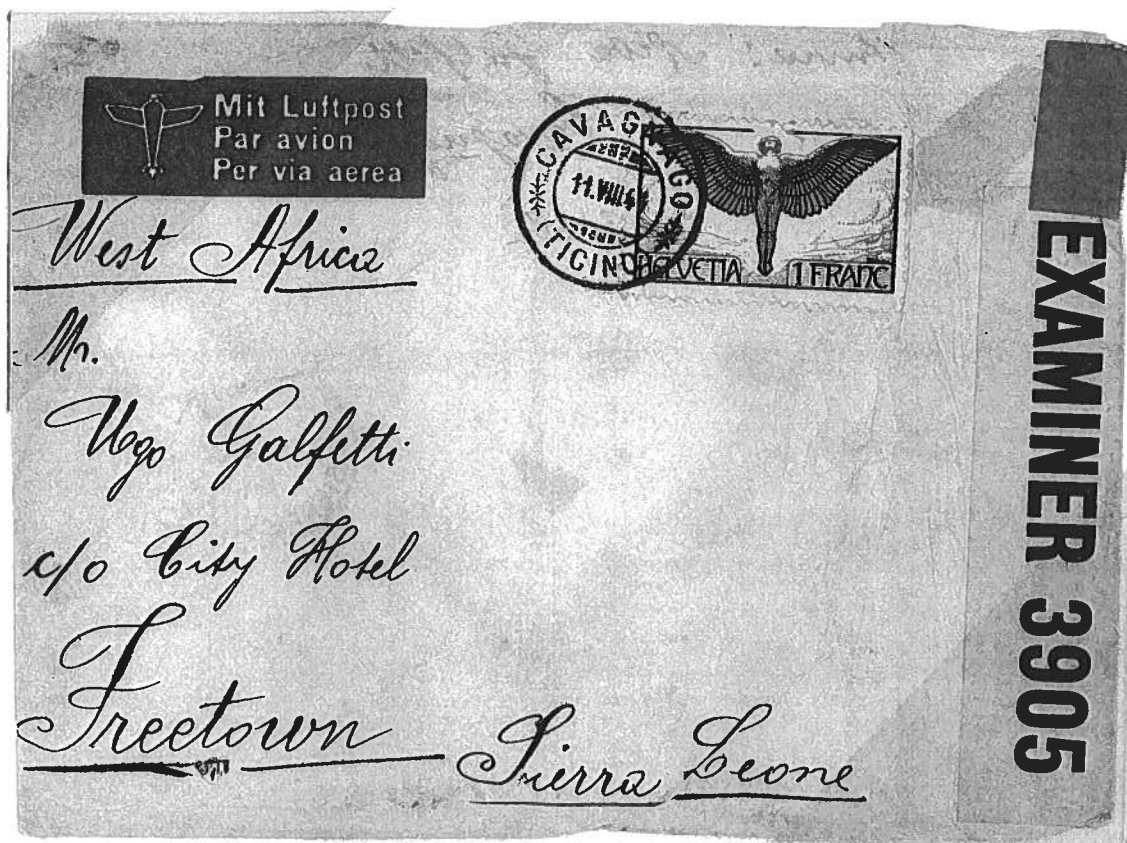 Mit Luftpost
Par avion
Per via aerea
CAVAGNAGO
(TICINO)
HELVETIA 1 FRANC
West Africa
Mr.
Ugo Galfetti
c/o City Hotel
Freetown
Sierra Leone
EXAMINER 3905